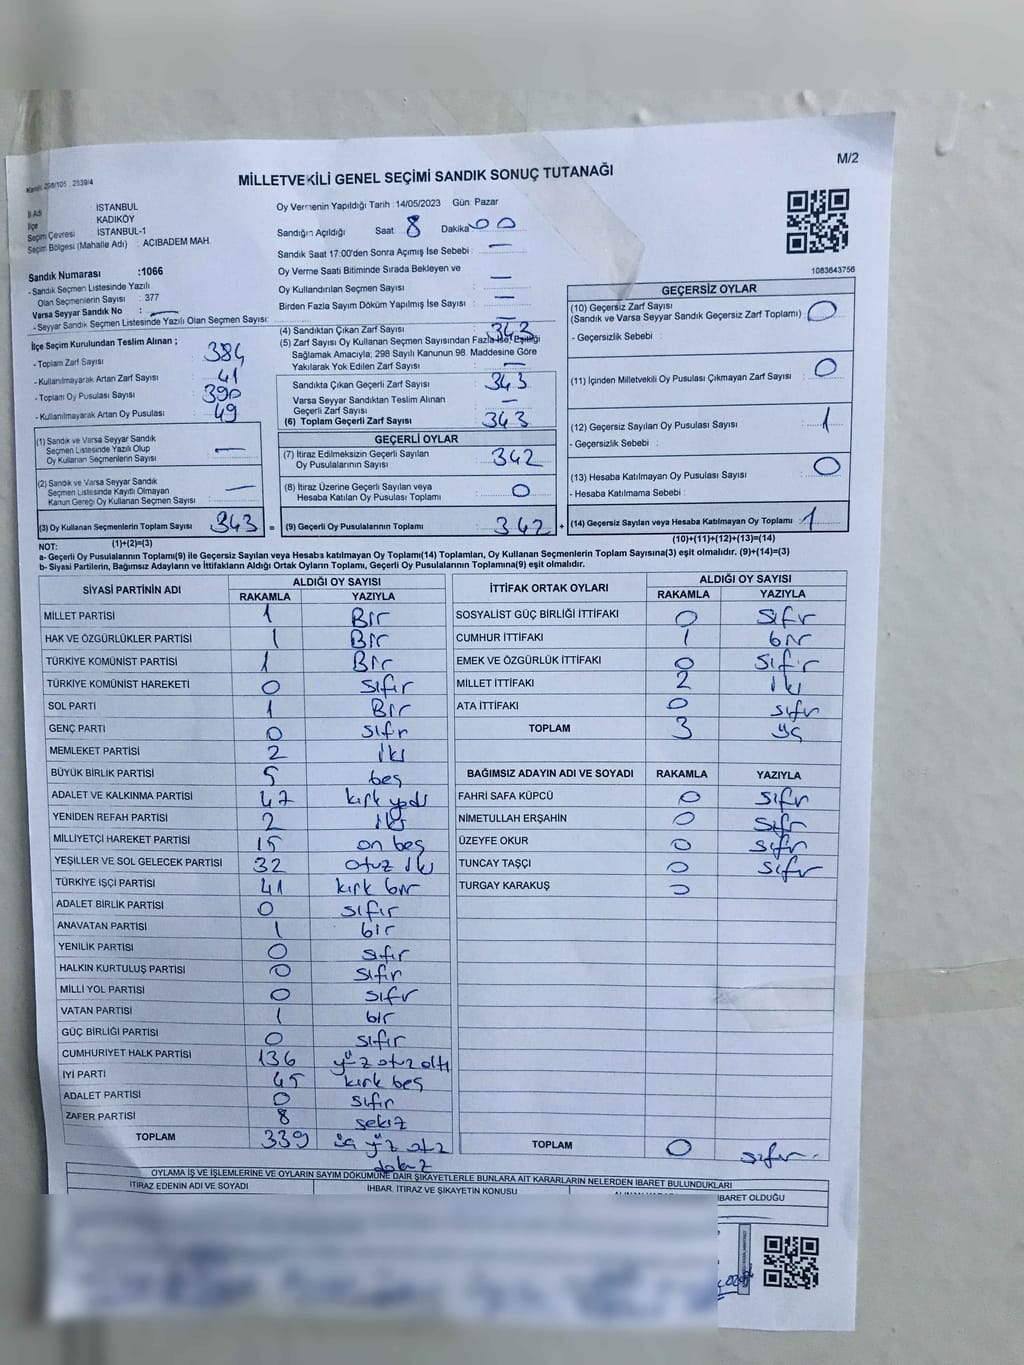 M/2
MİLLETVEKİLİ GENEL SEÇİMİ SANDIK SONUÇ TUTANAĞI
İl Adı : İSTANBUL
İlçe : KADIKÖY
Seçim Çevresi : İSTANBUL-1
Seçim Bölgesi (Mahalle Adı) : ACIBADEM MAH.
Oy Vermenin Yapıldığı Tarih :14/05/2023 Gün: Pazar
Sandığın Açıldığı Saat: 8 Dakika: 00
Sandık Saat 17:00'den Sonra Açılmış İse Sebebi : —
Oy Verme Saati Bitiminde Sırada Bekleyen ve
Oy Kullandırılan Seçmen Sayısı : —
Birden Fazla Sayım Döküm Yapılmış İse Sayısı : —
1083643756
Sandık Numarası :1066
- Sandık Seçmen Listesinde Yazılı
Olan Seçmenlerin Sayısı : 377
Varsa Seyyar Sandık No : —
- Seyyar Sandık Seçmen Listesinde Yazılı Olan Seçmen Sayısı: —
İlçe Seçim Kurulundan Teslim Alınan ;
- Toplam Zarf Sayısı 384
- Kullanılmayarak Artan Zarf Sayısı 41
- Toplam Oy Pusulası Sayısı 390
- Kullanılmayarak Artan Oy Pusulası 49
(1) Sandık ve Varsa Seyyar Sandık
Seçmen Listesinde Yazılı Olup
Oy Kullanan Seçmenlerin Sayısı —
(2) Sandık ve Varsa Seyyar Sandık
Seçmen Listesinde Kayıtlı Olmayan
Kanun Gereği Oy Kullanan Seçmen Sayısı —
(3) Oy Kullanan Seçmenlerin Toplam Sayısı 343 =
(1)+(2)=(3)
(4) Sandıktan Çıkan Zarf Sayısı 343
(5) Zarf Sayısı Oy Kullanan Seçmen Sayısından Fazla İse, Eşitliği
Sağlamak Amacıyla, 298 Sayılı Kanunun 98. Maddesine Göre
Yakılarak Yok Edilen Zarf Sayısı : —
Sandıkta Çıkan Geçerli Zarf Sayısı : 343
Varsa Seyyar Sandıktan Teslim Alınan
Geçerli Zarf Sayısı : —
(6) Toplam Geçerli Zarf Sayısı : 343
GEÇERLİ OYLAR
(7) İtiraz Edilmeksizin Geçerli Sayılan
Oy Pusulalarının Sayısı : 342
(8) İtiraz Üzerine Geçerli Sayılan veya
Hesaba Katılan Oy Pusulası Toplamı : 0
(9) Geçerli Oy Pusulalarının Toplamı : 342 +
GEÇERSİZ OYLAR
(10) Geçersiz Zarf Sayısı
(Sandık ve Varsa Seyyar Sandık Geçersiz Zarf Toplamı) : 0
- Geçersizlik Sebebi :
(11) İçinden Milletvekili Oy Pusulası Çıkmayan Zarf Sayısı : 0
(12) Geçersiz Sayılan Oy Pusulası Sayısı : 1
- Geçersizlik Sebebi :
(13) Hesaba Katılmayan Oy Pusulası Sayısı : 0
- Hesaba Katılmama Sebebi :
(14) Geçersiz Sayılan veya Hesaba Katılmayan Oy Toplamı : 1
(10)+(11)+(12)+(13)=(14)
NOT:
a- Geçerli Oy Pusulalarının Toplamı(9) ile Geçersiz Sayılan veya Hesaba katılmayan Oy Toplamı(14) Toplamları, Oy Kullanan Seçmenlerin Toplam Sayısına(3) eşit olmalıdır. (9)+(14)=(3)
b- Siyasi Partilerin, Bağımsız Adayların ve İttifakların Aldığı Ortak Oyların Toplamı, Geçerli Oy Pusulalarının Toplamına(9) eşit olmalıdır.
SİYASİ PARTİNİN ADI ALDIĞI OY SAYISI
RAKAMLA YAZIYLA
MİLLET PARTİSİ 1 Bir
HAK VE ÖZGÜRLÜKLER PARTİSİ 1 Bir
TÜRKİYE KOMÜNİST PARTİSİ 1 Bir
TÜRKİYE KOMÜNİST HAREKETİ 0 sıfır
SOL PARTİ 1 Bir
GENÇ PARTİ 0 sıfr
MEMLEKET PARTİSİ 2 iki
BÜYÜK BİRLİK PARTİSİ 5 beş
ADALET VE KALKINMA PARTİSİ 47 kırk yedi
YENİDEN REFAH PARTİSİ 2 iki
MİLLİYETÇİ HAREKET PARTİSİ 15 on beş
YEŞİLLER VE SOL GELECEK PARTİSİ 32 otuz iki
TÜRKİYE İŞÇİ PARTİSİ 41 kırk bir
ADALET BİRLİK PARTİSİ 0 sıfır
ANAVATAN PARTİSİ 1 bir
YENİLİK PARTİSİ 0 sıfır
HALKIN KURTULUŞ PARTİSİ 0 sıfır
MİLLİ YOL PARTİSİ 0 sıfır
VATAN PARTİSİ 1 bir
GÜÇ BİRLİĞİ PARTİSİ 0 sıfır
CUMHURİYET HALK PARTİSİ 136 yüz otuz altı
İYİ PARTİ 45 kırk beş
ADALET PARTİSİ 0 sıfır
ZAFER PARTİSİ 8 sekiz
TOPLAM 339 üç yüz otuz dokuz
İTTİFAK ORTAK OYLARI ALDIĞI OY SAYISI
RAKAMLA YAZIYLA
SOSYALİST GÜÇ BİRLİĞİ İTTİFAKI 0 sıfr
CUMHUR İTTİFAKI 1 bir
EMEK VE ÖZGÜRLÜK İTTİFAKI 0 sıfır
MİLLET İTTİFAKI 2 iki
ATA İTTİFAKI 0 sıfr
TOPLAM 3 üç
BAĞIMSIZ ADAYIN ADI VE SOYADI RAKAMLA YAZIYLA
FAHRİ SAFA KÜPCÜ 0 sıfr
NİMETULLAH ERŞAHİN 0 sıfr
ÜZEYFE OKUR 0 sıfr
TUNCAY TAŞÇI 0 sıfr
TURGAY KARAKUŞ 0
TOPLAM 0 sıfır
OYLAMA İŞ VE İŞLEMLERİNE VE OYLARIN SAYIM DÖKÜMÜNE DAİR ŞİKAYETLERLE BUNLARA AİT KARARLARIN NELERDEN İBARET BULUNDUKLARI
İTİRAZ EDENİN ADI VE SOYADI İHBAR, İTİRAZ VE ŞİKAYETİN KONUSU İBARET OLDUĞU